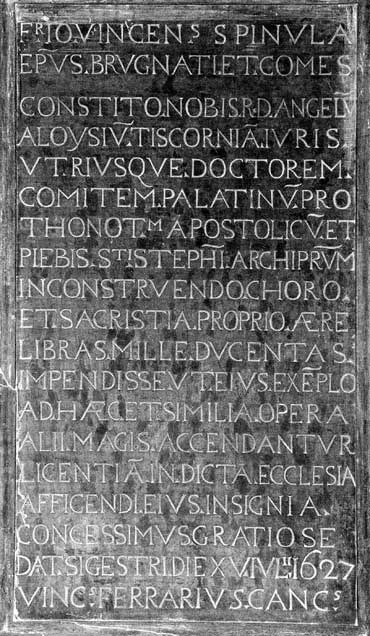 FR IO. VINCENS SPINULA
EPVS. BRVGNATI. ET. COMES
CONSTITO. NOBIS. R. D. ANGELŪ
ALOYSIŪ. TISCORNIĀ. IVRIS.
VTRIVSQVE. DOCTOREM.
COMITEM. PALATINV̄. PRO
THONOT.M APOSTOLICV̄. ET
PLEBIS. S.TI STEPHĪ. ARCHIPRV̄M
IN CONSTRVENDO CHORO.
ET. SACRISTIA. PROPRIO. ÆRE
LIBRAS. MILLE. DVCENTAS.
IMPENDISSE VT. EIVS. EXĒPLO
AD. HÆC ET SIMILIA. OPERA
ALII. MAGIS. ACCENDANTVR
LICENTIĀ. IN. DICTA. ECCLESIA
AFFIGENDI. EIVS. INSIGNIA.
CONCESSIMVS. GRATIOSE
DAT. SIGESTRI. DIE XVI IVL.II 1627
VINC.S FERRARIVS. CANC.S